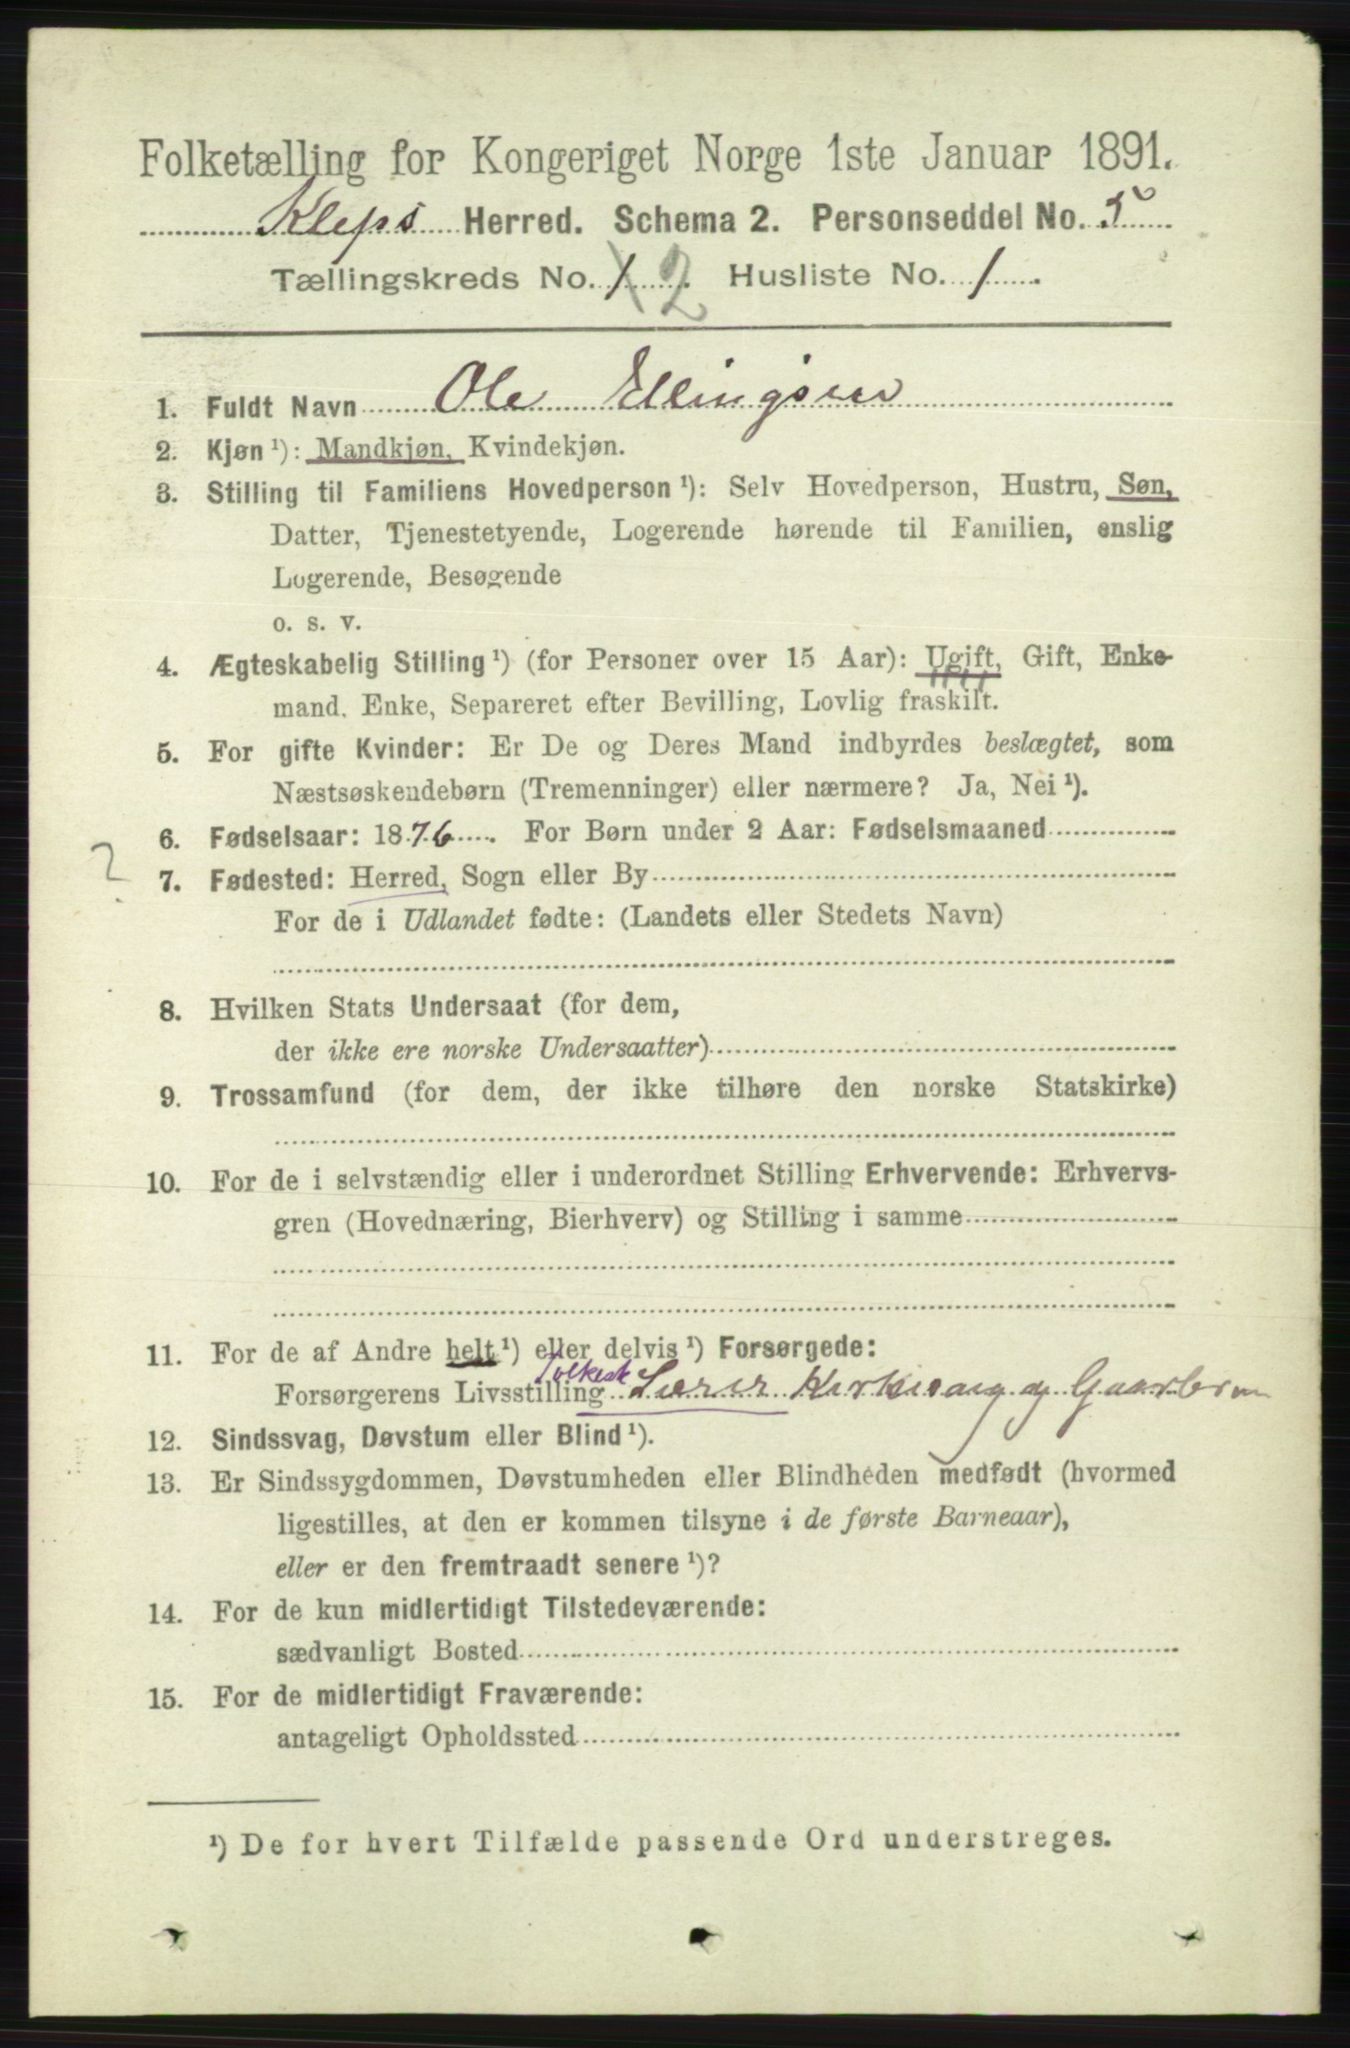 Folketælling for Kongeriget Norge 1ste Januar 1891.
Kleps Herred. Schema 2. Personseddel No. 5
Tællingskreds No. 1 2 Husliste No. 1
1. Fuldt Navn Ole Ellingsen
2. Kjøn ¹): Mandkjøn, Kvindekjøn.
3. Stilling til Familiens Hovedperson ¹): Selv Hovedperson, Hustru, Søn,
Datter, Tjenestetyende, Logerende hørende til Familien, enslig
Logerende, Besøgende
o. s. v.
4. Ægteskabelig Stilling ¹) (for Personer over 15 Aar): Ugift, Gift, Enke-
mand, Enke, Separeret efter Bevilling, Lovlig fraskilt.
5. For gifte Kvinder: Er De og Deres Mand indbyrdes beslægtet, som
Næstsøskendebørn (Tremenninger) eller nærmere? Ja, Nei ¹).
6. Fødselsaar: 1876. For Børn under 2 Aar: Fødselsmaaned
? 7. Fødested: Herred, Sogn eller By
For de i Udlandet fødte: (Landets eller Stedets Navn)
8. Hvilken Stats Undersaat (for dem,
der ikke ere norske Undersaatter)
9. Trossamfund (for dem, der ikke tilhøre den norske Statskirke)
10. For de i selvstændig eller i underordnet Stilling Erhvervende: Erhvervs-
gren (Hovednæring, Bierhverv) og Stilling i samme
11. For de af Andre helt ¹) eller delvis ¹) Forsørgede:
Forsørgerens Livsstilling Lærer Kirkesang og Gaarbr
12. Sindssvag, Døvstum eller Blind ¹).
13. Er Sindssygdommen, Døvstumheden eller Blindheden medfødt (hvormed
ligestilles, at den er kommen tilsyne i de første Barneaar),
eller er den fremtraadt senere ¹)?
14. For de kun midlertidigt Tilstedeværende:
sædvanligt Bosted
15. For de midlertidigt Fraværende:
antageligt Opholdssted
¹) De for hvert Tilfælde passende Ord understreges.